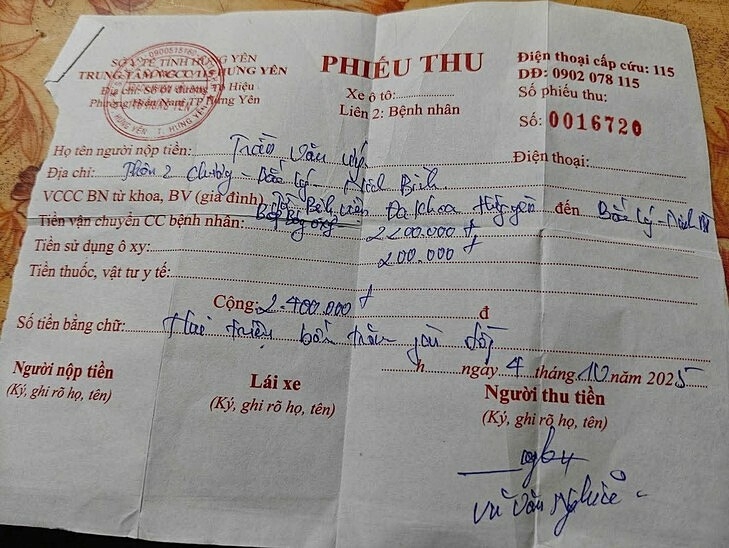 SỞ Y TẾ TỈNH HƯNG YÊN
TRUNG TÂM VCCC 115 HƯNG YÊN
Địa chỉ: Số 01 đường Tô Hiệu
Phường Hiến Nam TP Hưng Yên
0900515160
HƯNG YÊN T. HƯNG YÊN
PHIẾU THU
Xe ô tô:
Liên 2: Bệnh nhân
Điện thoại cấp cứu: 115
DĐ: 0902 078 115
Số phiếu thu:
Số: 0016720
Họ tên người nộp tiền: Trần Văn
Điện thoại:
Địa chỉ: Thôn 2 - Bắc Lý - Ninh Bình
VCCC BN từ khoa, BV (gia đình) Từ Bệnh viện Đa khoa đến Bắc Lý - Ninh
Tiền vận chuyển CC bệnh nhân: 2200.000 đ
Tiền sử dụng ô xy: 200.000 đ
Tiền thuốc, vật tư y tế:
Cộng: 2.400.000 đ đ
Số tiền bằng chữ: Hai triệu bốn trăm đồng
h ngày 4 tháng 10 năm 2025
Người nộp tiền
(Ký, ghi rõ họ, tên)
Lái xe
(Ký, ghi rõ họ, tên)
Người thu tiền
(Ký, ghi rõ họ, tên)
Vũ Văn